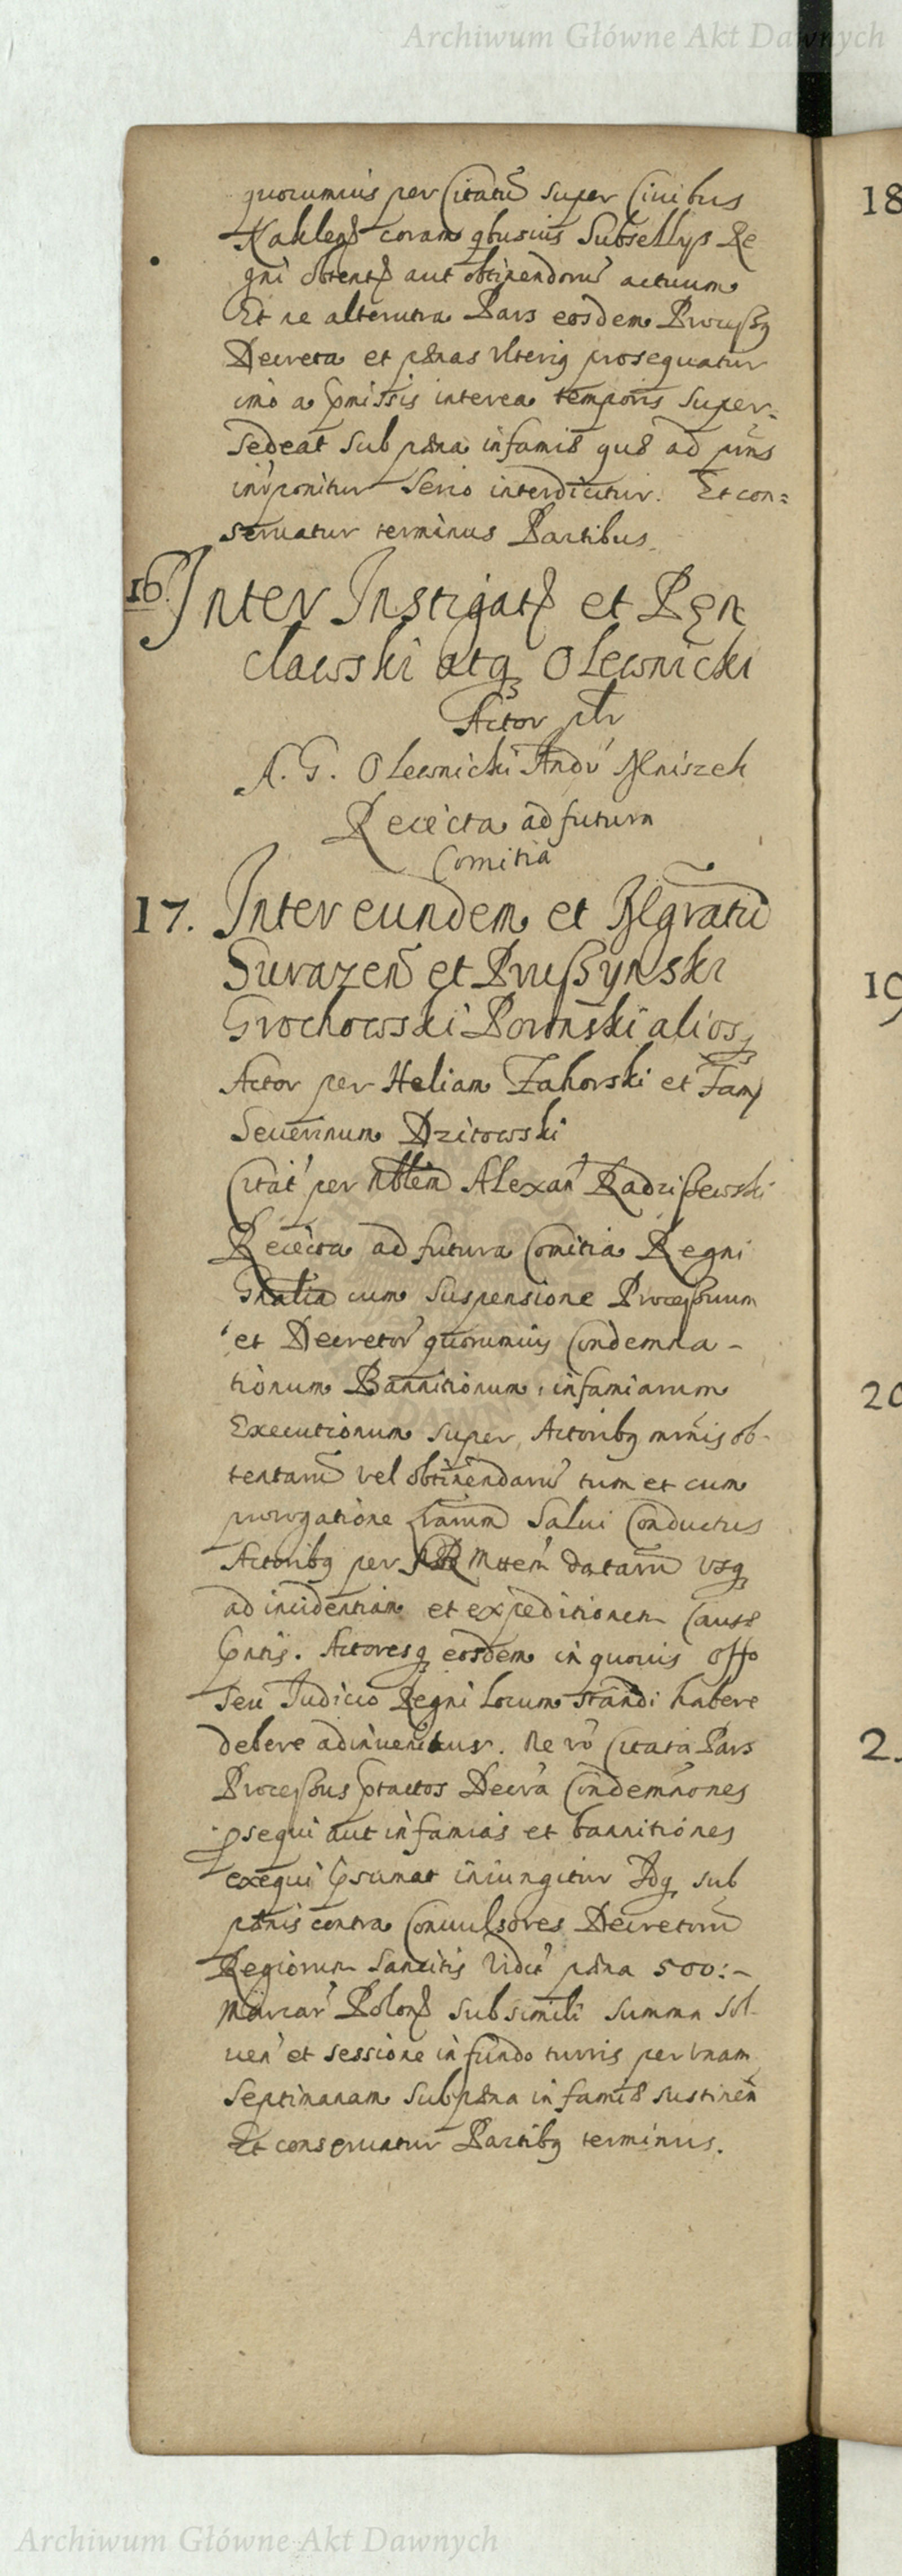 Archiwum Główne Akt Dawnych
quorumuis per Citatū super Ciuibus
coram qbusuis Subsellÿs Re
gni obtent aut obtinendorū actuum
Et ne alterutra Pars eosdem Processq
Decreta et pænas Vlteriq prosequatur
imò a pmissis interea temporis super-
sedeat sub pæna infamiæ quæ ad pñs
imponitur serio interdicitur. Et con=
seruatur terminus Partibus
16. Inter Instigat et Pęn
clawski atq Olewnicki
Actor ptr
A. G. Olewnicki Andr Mniszek
Reiecta ad futura
Comitia
17. Inter eundem et Mgratū
Surazeñ et Prussynski
Grochowski Poronski aliosq
Actor per Helian Zahorski et Fam
Seuerinum Dzitowski
Citat per Nblem Alexan Radzissewski
Reiecta ad futura Comitia Regni
Gñalia cum suspensione Processuum
et Decretor quorumuis Condemna-
tionum Bannitionum infamiarum
Executionum super Actoribq ob-
tentarū vel obtinendarū tum et cum
prorogatione Lrarum Salui Conductus
Actoribq per Mttem datarū vsq
ad incidentiam et expeditionem Causæ
pntis. Actoresq eosdem in quouis offo
seu Iudicio Regni Locum standi habere
debere adinuenitur. Ne vō Citata Pars
Processus ptactos Decrā Condemnōnes
psequi aut infamias et bannitiones
exequi psumat iniungitur Idq sub
pænis contra Conuulsores Decretorū
Regiorum Sancitis Vidct pæna 500:-
Marcar Polon sub simili summa sol-
uen et sessione in fundo turris per vnam
septimanam sub pæna infamiæ sustinen
Et conseruatur Partibq terminus.
18
19
20
2
Archiwum Główne Akt Dawnych